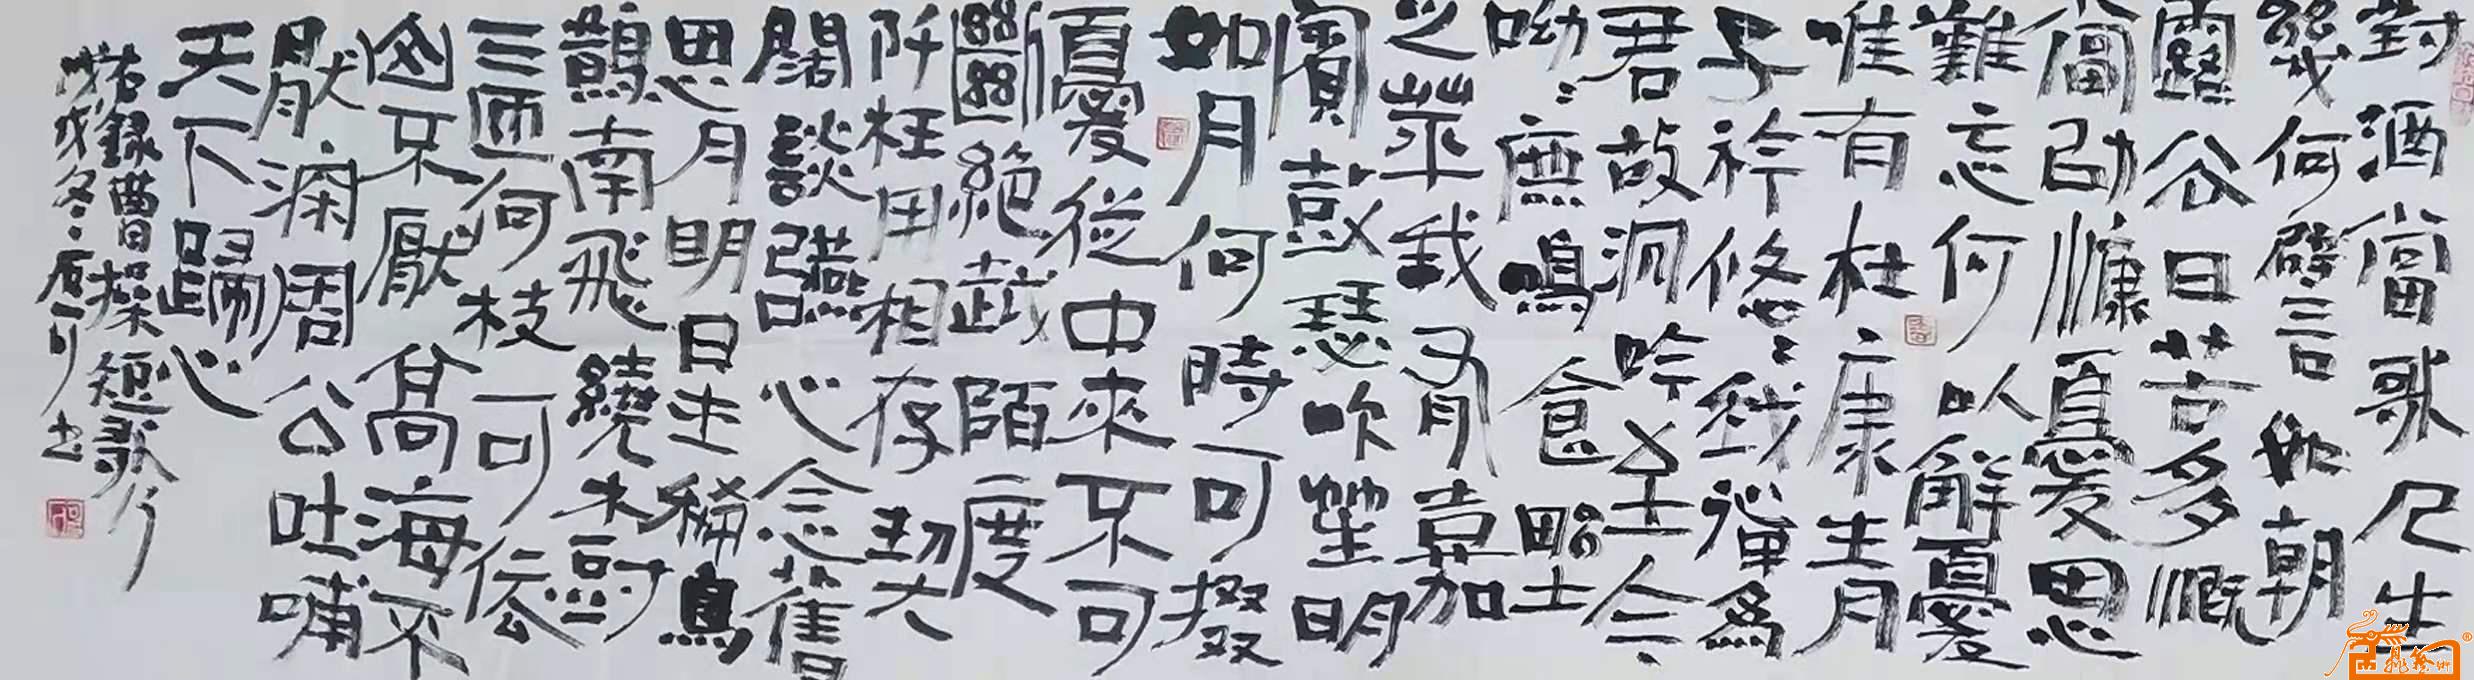 對酒當歌人生
幾何譬如朝
露去日苦多慨
當以慷憂思
難忘何以解憂
唯有杜康青
子衿悠〻我僤為
君故沉吟至今〻
呦〻鹿鳴食野
之苹我有嘉
賓鼓瑟吹笙明
如月何時可掇
憂從中來不可
斷絕越陌度
阡枉用相存契
闊談讌心念舊
恩月明星稀烏
鵲南飛繞樹
三匝何枝可依
山不厭高海不
厭深周公吐哺
天下歸心
右錄曹操短歌行
戊戌冬可書